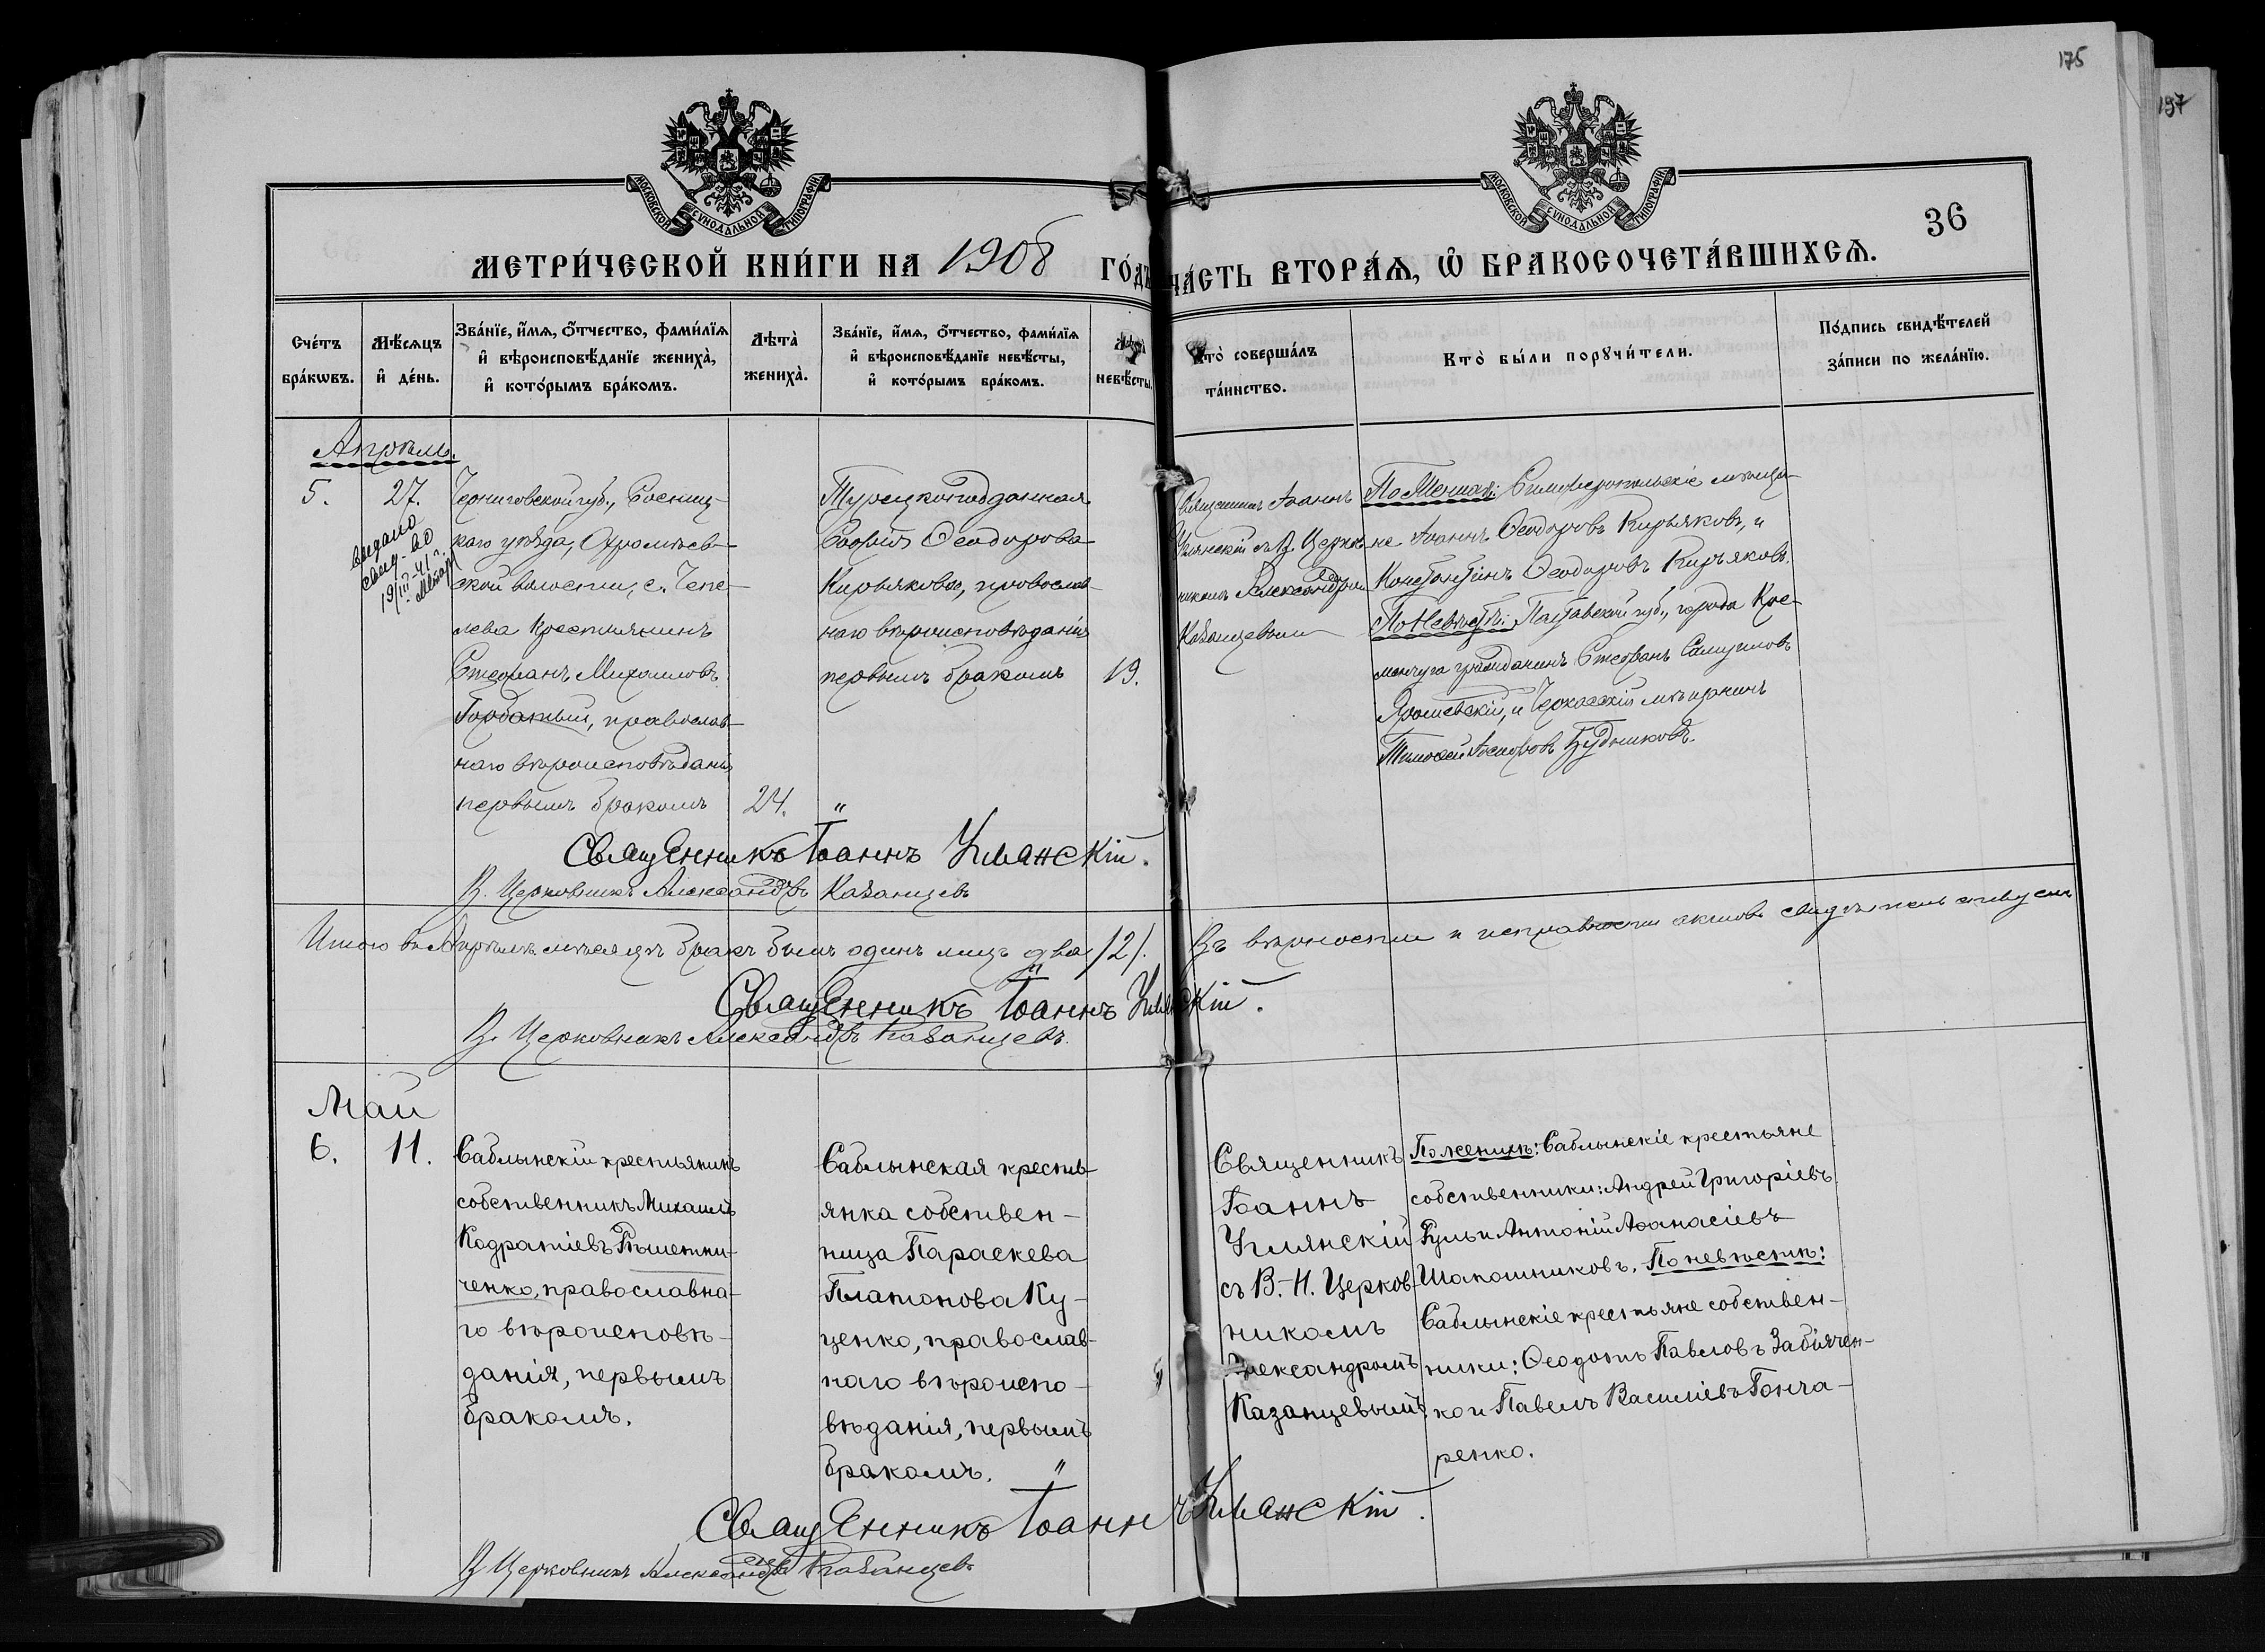 175
197
МОСКОВСКОЙ СУНОДАЛЬНОЙ ТИПОГРАФІИ
МОСКОВСКОЙ СУНОДАЛЬНОЙ ТИПОГРАФІИ
36
МЕТРИ́ЧЕСКОЙ КНИ́ГИ НА 1908 ГО́ДЪ
ЧА́СТЬ ВТОРА́Ѧ, Ѡ҆ БРАКОСОЧЕТА́ВШИХСѦ.
Сче́тъ
бра́кѡвъ.
Мѣ́сѧцъ
и҆ де́нь.
Зва́нїе, и҆́мѧ, ѻ҆́тчество, фами́лїѧ
и҆ вѣроисповѣ́данїе жениха̀,
и҆ кото́рымъ бра́комъ.
Лѣта̀
жениха̀.
Зва́нїе, и҆́мѧ, ѻ҆́тчество, фами́лїѧ
и҆ вѣроисповѣ́данїе невѣ́сты,
и҆ кото́рымъ бра́комъ.
невѣ́сты.
Кто̀ соверша́лъ
та́инство.
Кто̀ бы́ли порꙋчи́тели.
По́дпись свидѣ́телей
за́писи по жела́нїю.
Апрѣль.
5.
27.
выдано
свид-во
19/III-41 г.
Черниговской губ., Сосниц-
каго уѣзда,
ской волости, с. Чепе-
лева крестьянинъ
Стефанъ Михаиловъ
Горбатый, православ-
наго вѣроисповѣданія
первымъ бракомъ
24.
Турецкоподданная
Софія Ѳеодорова
Кирьякова, православ-
наго вѣроисповѣданія
первымъ бракомъ
19.
"
Священникъ Іоаннъ
Уманскій съ В. Церков-
никомъ Александромъ
Казанцевым
По Жениху: Симферопольскіе мѣща-
не Іоаннъ Ѳеодоровъ Кирьяковъ, и
Константинъ Ѳеодоровъ Кирьяковъ.
По Невѣстѣ: Полтавской губ., города Кре-
менчуга гражданинъ Стефанъ Самуиловъ
Ярошевскій, и Черкасскій мѣщанинъ
Тимоѳей Будниковъ.
Священникъ Іоаннъ Уманскій.
В. Церковникъ Александръ Казанцевъ
Итого въ Апрѣлѣ мѣсяцѣ бракъ былъ одинъ лицъ два /2/. Въ вѣрности и исправности актовъ свидѣтельствуемъ
Священникъ Іоаннъ Уманскій.
В. Церковникъ Александръ Казанцевъ.
Май
6.
11.
Саблынскій крестьянинъ
собственникъ Михаилъ
Кодратіевъ Рѣшетни-
ченко, православна-
го вѣроисповѣ-
данія, первымъ
бракомъ.
Саблынская кресть-
янка собствен-
ница Параскева
Платонова Ку-
ценко, православ-
наго вѣроиспо-
вѣданія, первымъ
бракомъ. "
Священникъ
Іоаннъ
Уманскій
съ В.-Н. Церков-
никомъ
Александромъ
Казанцевымъ.
По женихѣ: Саблынскіе крестьяне
собственники: Андрей Григоріевъ
Гуль и Антоній Аѳанасіевъ
Шапошниковъ. По невѣстѣ:
Саблынскіе крестьяне собствен-
ники: Ѳеодотъ Павловъ Забіячен-
ко и Павелъ Василіевъ Гонча-
ренко.
Священникъ Іоаннъ Уманскій.
В Церковникъ Александръ Казанцевъ